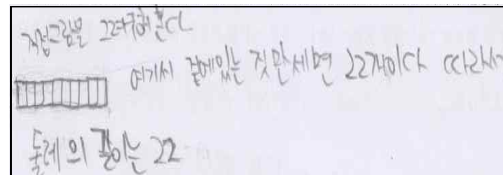 직접그림을 그려구해본다
여기서 겉에있는 것만세면 22개이다 따라서
둘레의 길이는 22